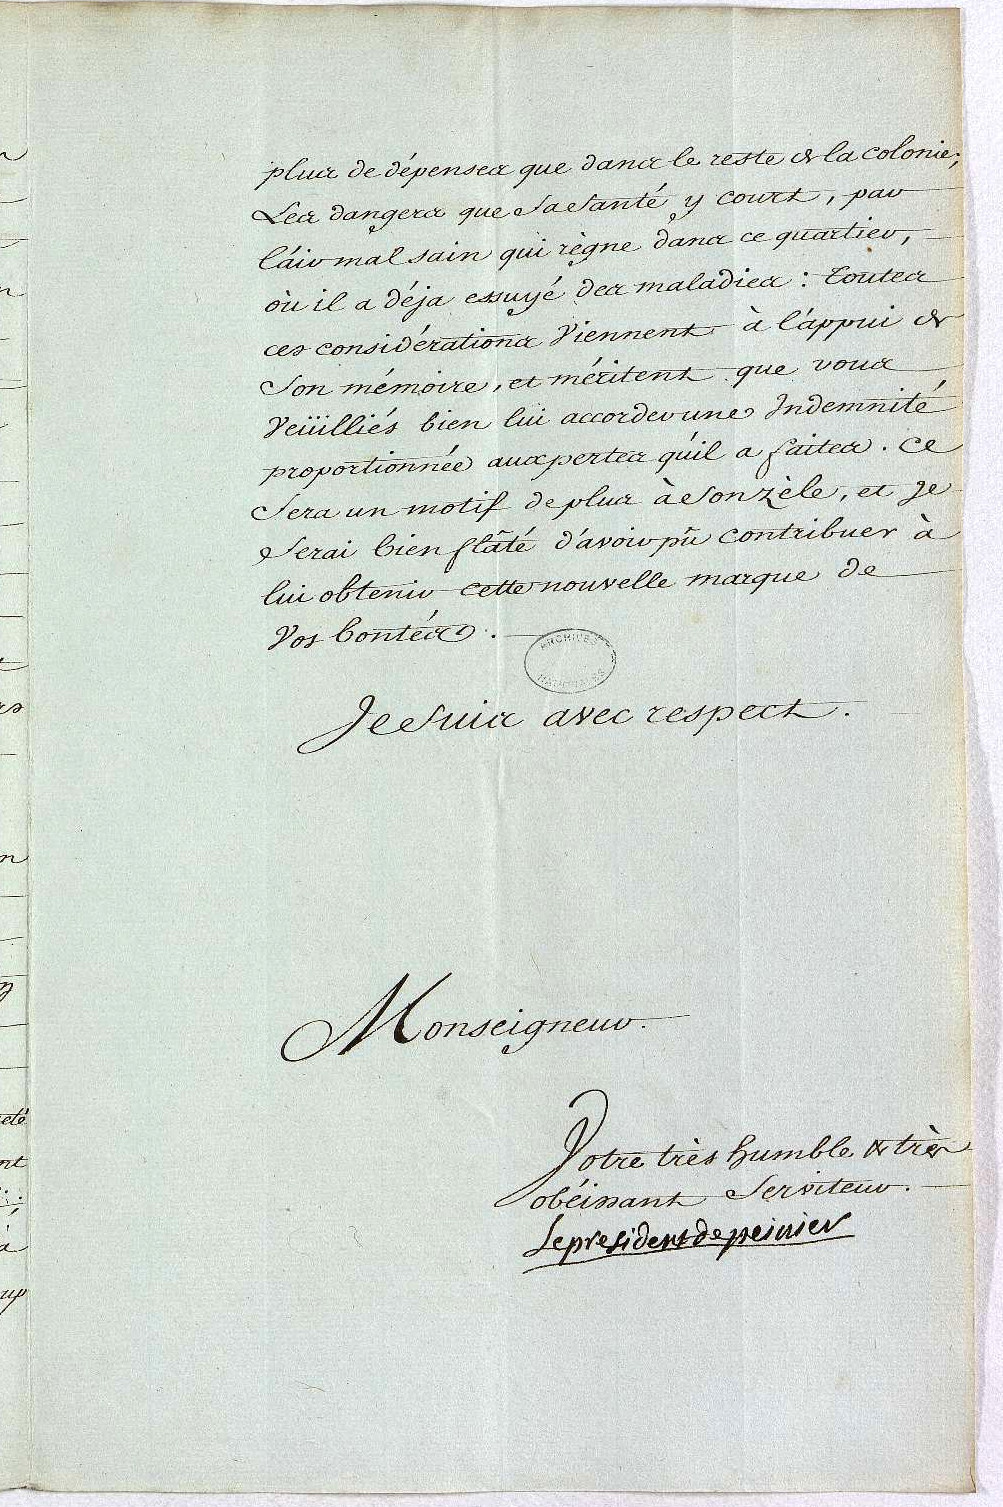 plus de dépenses que dans le reste de la colonie;
Les dangers que Sa Santé y court, par
l'áir mal sain qui règne dans ce quartier,
où il a déja essuyé des maladies : toutes
ces considérations Viennent à l'áppui de
Son mémoire, et méritent que vous
Veüilliés bien lui accorder une Indemnité
proportionnée aux pertes qu'il a faites. Ce
Sera un motif de plus à Son zèle, et Je
Serai bien flâté d'avoir pû contribuer à
lui obtenir cette nouvelle marque de
Vos bontés.
ARCHIVES NATIONALES
Je Suis avec respect.
Monseigneur.
Votre très humble & très
obéissant Serviteur.
Le president de peinier